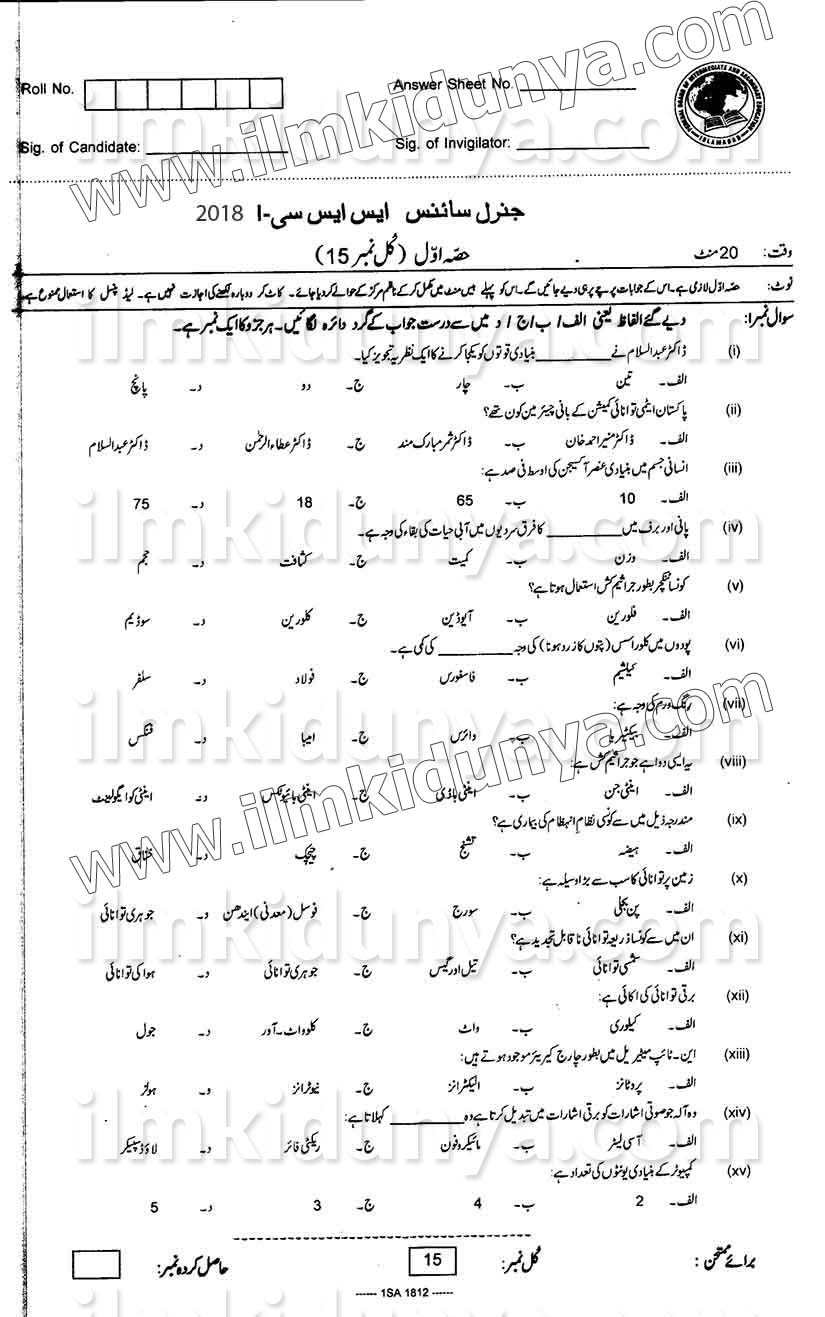 Roll No.
Answer Sheet No.
FEDERAL BOARD OF INTERMEDIATE AND SECONDARY EDUCATION ISLAMABAD
Sig. of Candidate:
Sig. of Invigilator:
www.ilmkidunya.com
جنرل سائنس ایس ایس سی-I 2018
وقت: 20 منٹ
حصّہ اوّل (کُل نمبر 15)
نوٹ: حصّہ اوّل لازمی ہے۔ اس کے جوابات پرچے پر ہی دیے جائیں گے۔ اس کو پہلے بیس منٹ میں مکمل کر کے ناظم مرکز کے حوالے کر دیا جائے۔ کاٹ کر دوبارہ لکھنے کی اجازت نہیں ہے۔ لیڈ پنسل کا استعمال ممنوع ہے۔
سوال نمبر۱: دیے گئے الفاظ یعنی الف / ب / ج / د میں سے درست جواب کے گرد دائرہ لگائیں۔ ہر جزو کا ایک نمبر ہے۔
(i) ڈاکٹر عبدالسلام نے ________ بنیادی قوتوں کو یکجا کرنے کا ایک نظریہ تجویز کیا۔
الف۔ تین ب۔ چار ج۔ دو د۔ پانچ
(ii) پاکستان ایٹمی توانائی کمیشن کے بانی چیئرمین کون تھے؟
الف۔ ڈاکٹر منیر احمد خان ب۔ ڈاکٹر ثمر مبارک مند ج۔ ڈاکٹر عطاء الرحمٰن د۔ ڈاکٹر عبدالسلام
(iii) انسانی جسم میں بنیادی عنصر آکسیجن کی اوسط فی صد ہے:
الف۔ 10 ب۔ 65 ج۔ 18 د۔ 75
(iv) پانی اور برف میں ________ کا فرق سردیوں میں آبی حیات کی بقاء کی وجہ ہے۔
الف۔ وزن ب۔ کمیت ج۔ کثافت د۔ حجم
(v) کونسا ٹنکچر بطور جراثیم کش استعمال ہوتا ہے؟
الف۔ فلورین ب۔ آیوڈین ج۔ کلورین د۔ سوڈیم
(vi) پودوں میں کلوراسس (پتوں کا زرد ہونا) کی وجہ ________ کی کمی ہے۔
الف۔ کیلشیم ب۔ فاسفورس ج۔ فولاد د۔ سلفر
(vii) رنگ ورم کی وجہ ہے:
الف۔ بیکٹیریا ب۔ وائرس ج۔ امیبا د۔ فنگس
(viii) یہ ایسی دوا ہے جو جراثیم کش ہے:
الف۔ اینٹی جن ب۔ اینٹی باڈی ج۔ اینٹی بائیوٹکس د۔ اینٹی کوایگولینٹ
(ix) مندرجہ ذیل میں سے کونسی نظام انہظام کی بیماری ہے؟
الف۔ ہیضہ ب۔ تشنج ج۔ چیچک د۔ خناق
(x) زمین پر توانائی کا سب سے بڑا وسیلہ ہے:
الف۔ پن بجلی ب۔ سورج ج۔ فوسل (معدنی) ایندھن د۔ جوہری توانائی
(xi) ان میں سے کونسا ذریعہ توانائی ناقابل تجدید ہے؟
الف۔ شمسی توانائی ب۔ تیل اور گیس ج۔ جوہری توانائی د۔ ہوا کی توانائی
(xii) برقی توانائی کی اکائی ہے:
الف۔ کیلوری ب۔ واٹ ج۔ کلوواٹ۔آور د۔ جول
(xiii) این۔ٹائپ میٹیریل میں بطور چارج کیریئر موجود ہوتے ہیں:
الف۔ پروٹانز ب۔ الیکٹرانز ج۔ نیوٹرانز و۔ ہولز
(xiv) وہ آلہ جو صوتی اشارات کو برقی اشارات میں تبدیل کرتا ہے وہ ________ کہلاتا ہے:
الف۔ آسی لیٹر ب۔ مائیکروفون ج۔ ریکٹی فائر د۔ لاؤڈ سپیکر
(xv) کمپیوٹر کے بنیادی یونٹوں کی تعداد ہے:
الف۔ 2 ب۔ 4 ج۔ 3 د۔ 5
برائے ممتحن: کُل نمبر: 15 حاصل کردہ نمبر:
------ 1SA 1812 ------